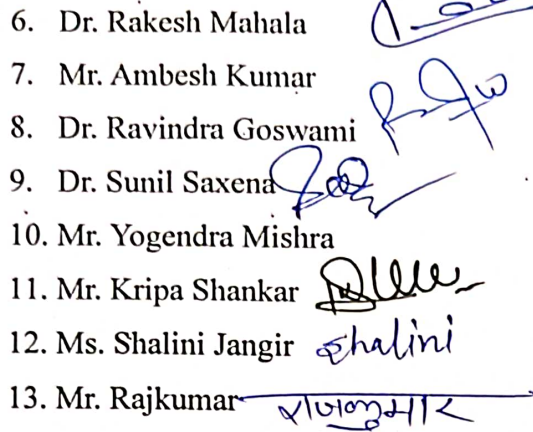 6. Dr. Rakesh Mahala
7. Mr. Ambesh Kumar
8. Dr. Ravindra Goswami
9. Dr. Sunil Saxena
10. Mr. Yogendra Mishra
11. Mr. Kripa Shankar
12. Ms. Shalini Jangir Shalini
13. Mr. Rajkumar राजकुमार